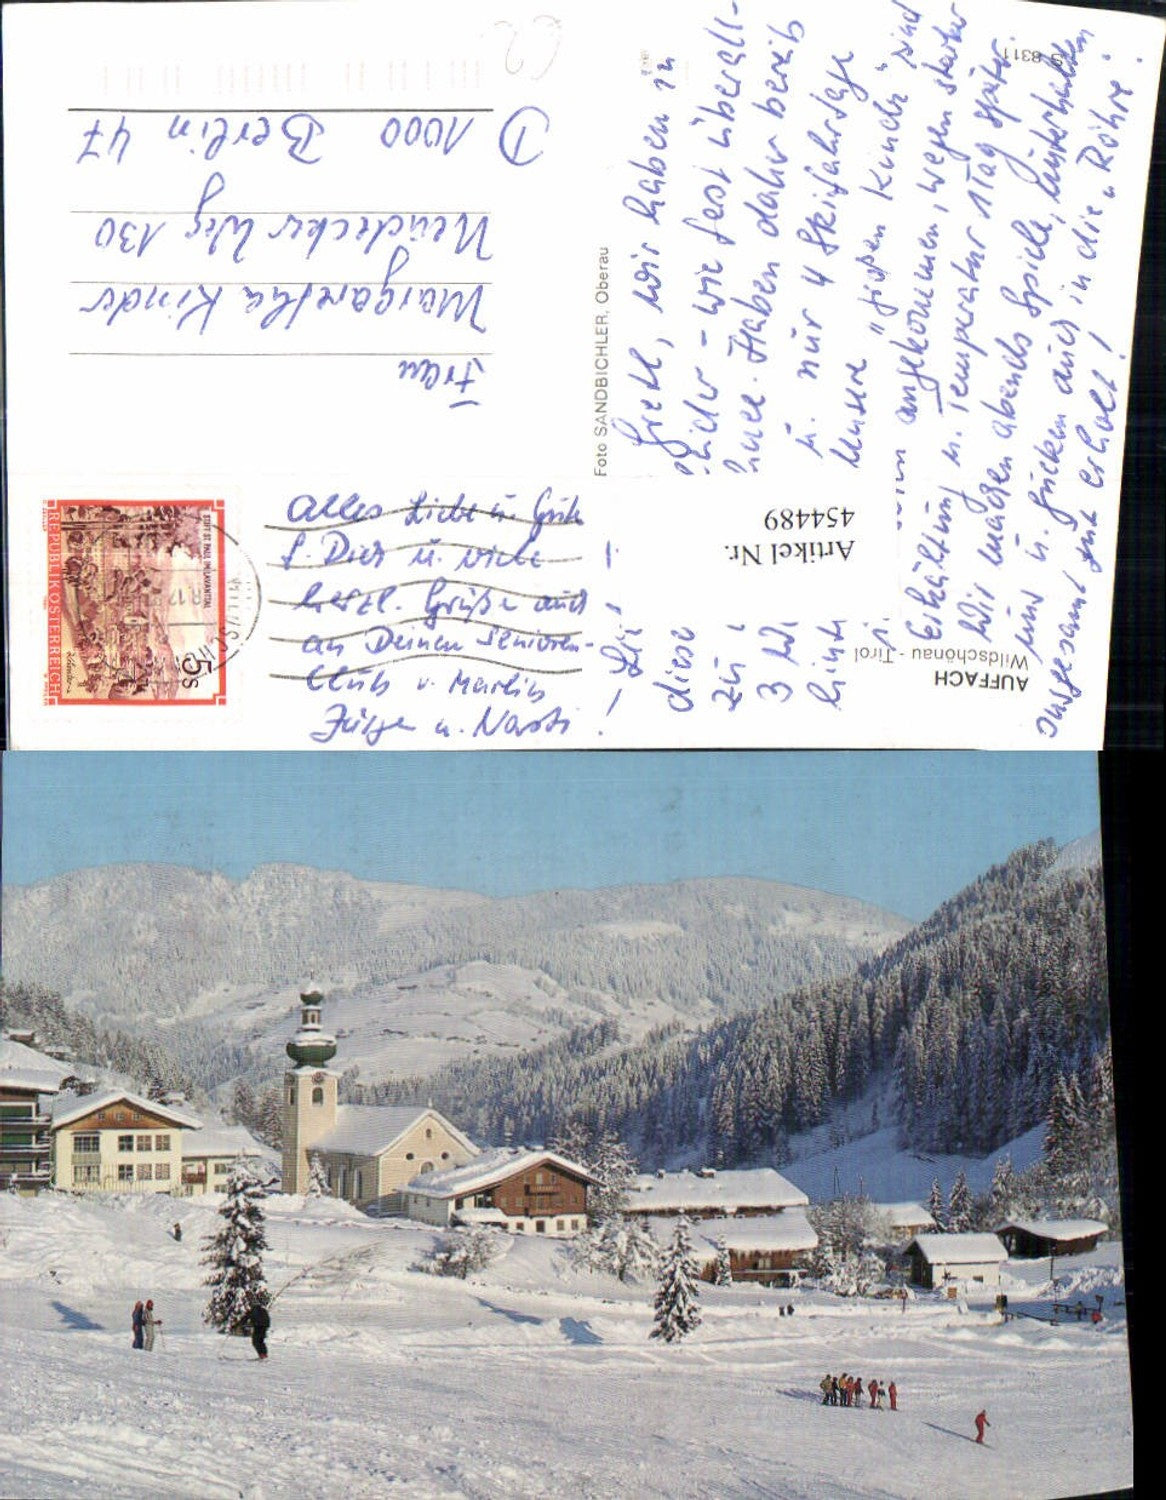 Frau
Margaretha Kinder
Neudecker Weg 130
D 1000 Berlin 47
REPUBLIK ÖSTERREICH
STIFT ST. PAUL IM LAVANTTAL
5 S
Foto SANDBICHLER, Oberau
AUFFACH
Wildschönau - Tirol
Artikel Nr.
454489
8311
wir haben in
diese
- wie fast überall -
zu
Haben daher bereits
3
u. nur 4 Skifahrtage
hint
Unsere „großen Kinder" sind
angekommen, wegen starker
Erkältung u. Temperatur 1 Tag später.
Wir machen abends Spiele, unterhalten
uns u. gucken auch in die „Röhre".
Insgesamt gut erholt!
Alles Liebe u. Gute
f. Dich u. viele
herzl. Grüße auch
an Deinen Senioren-
Club v. Marlis